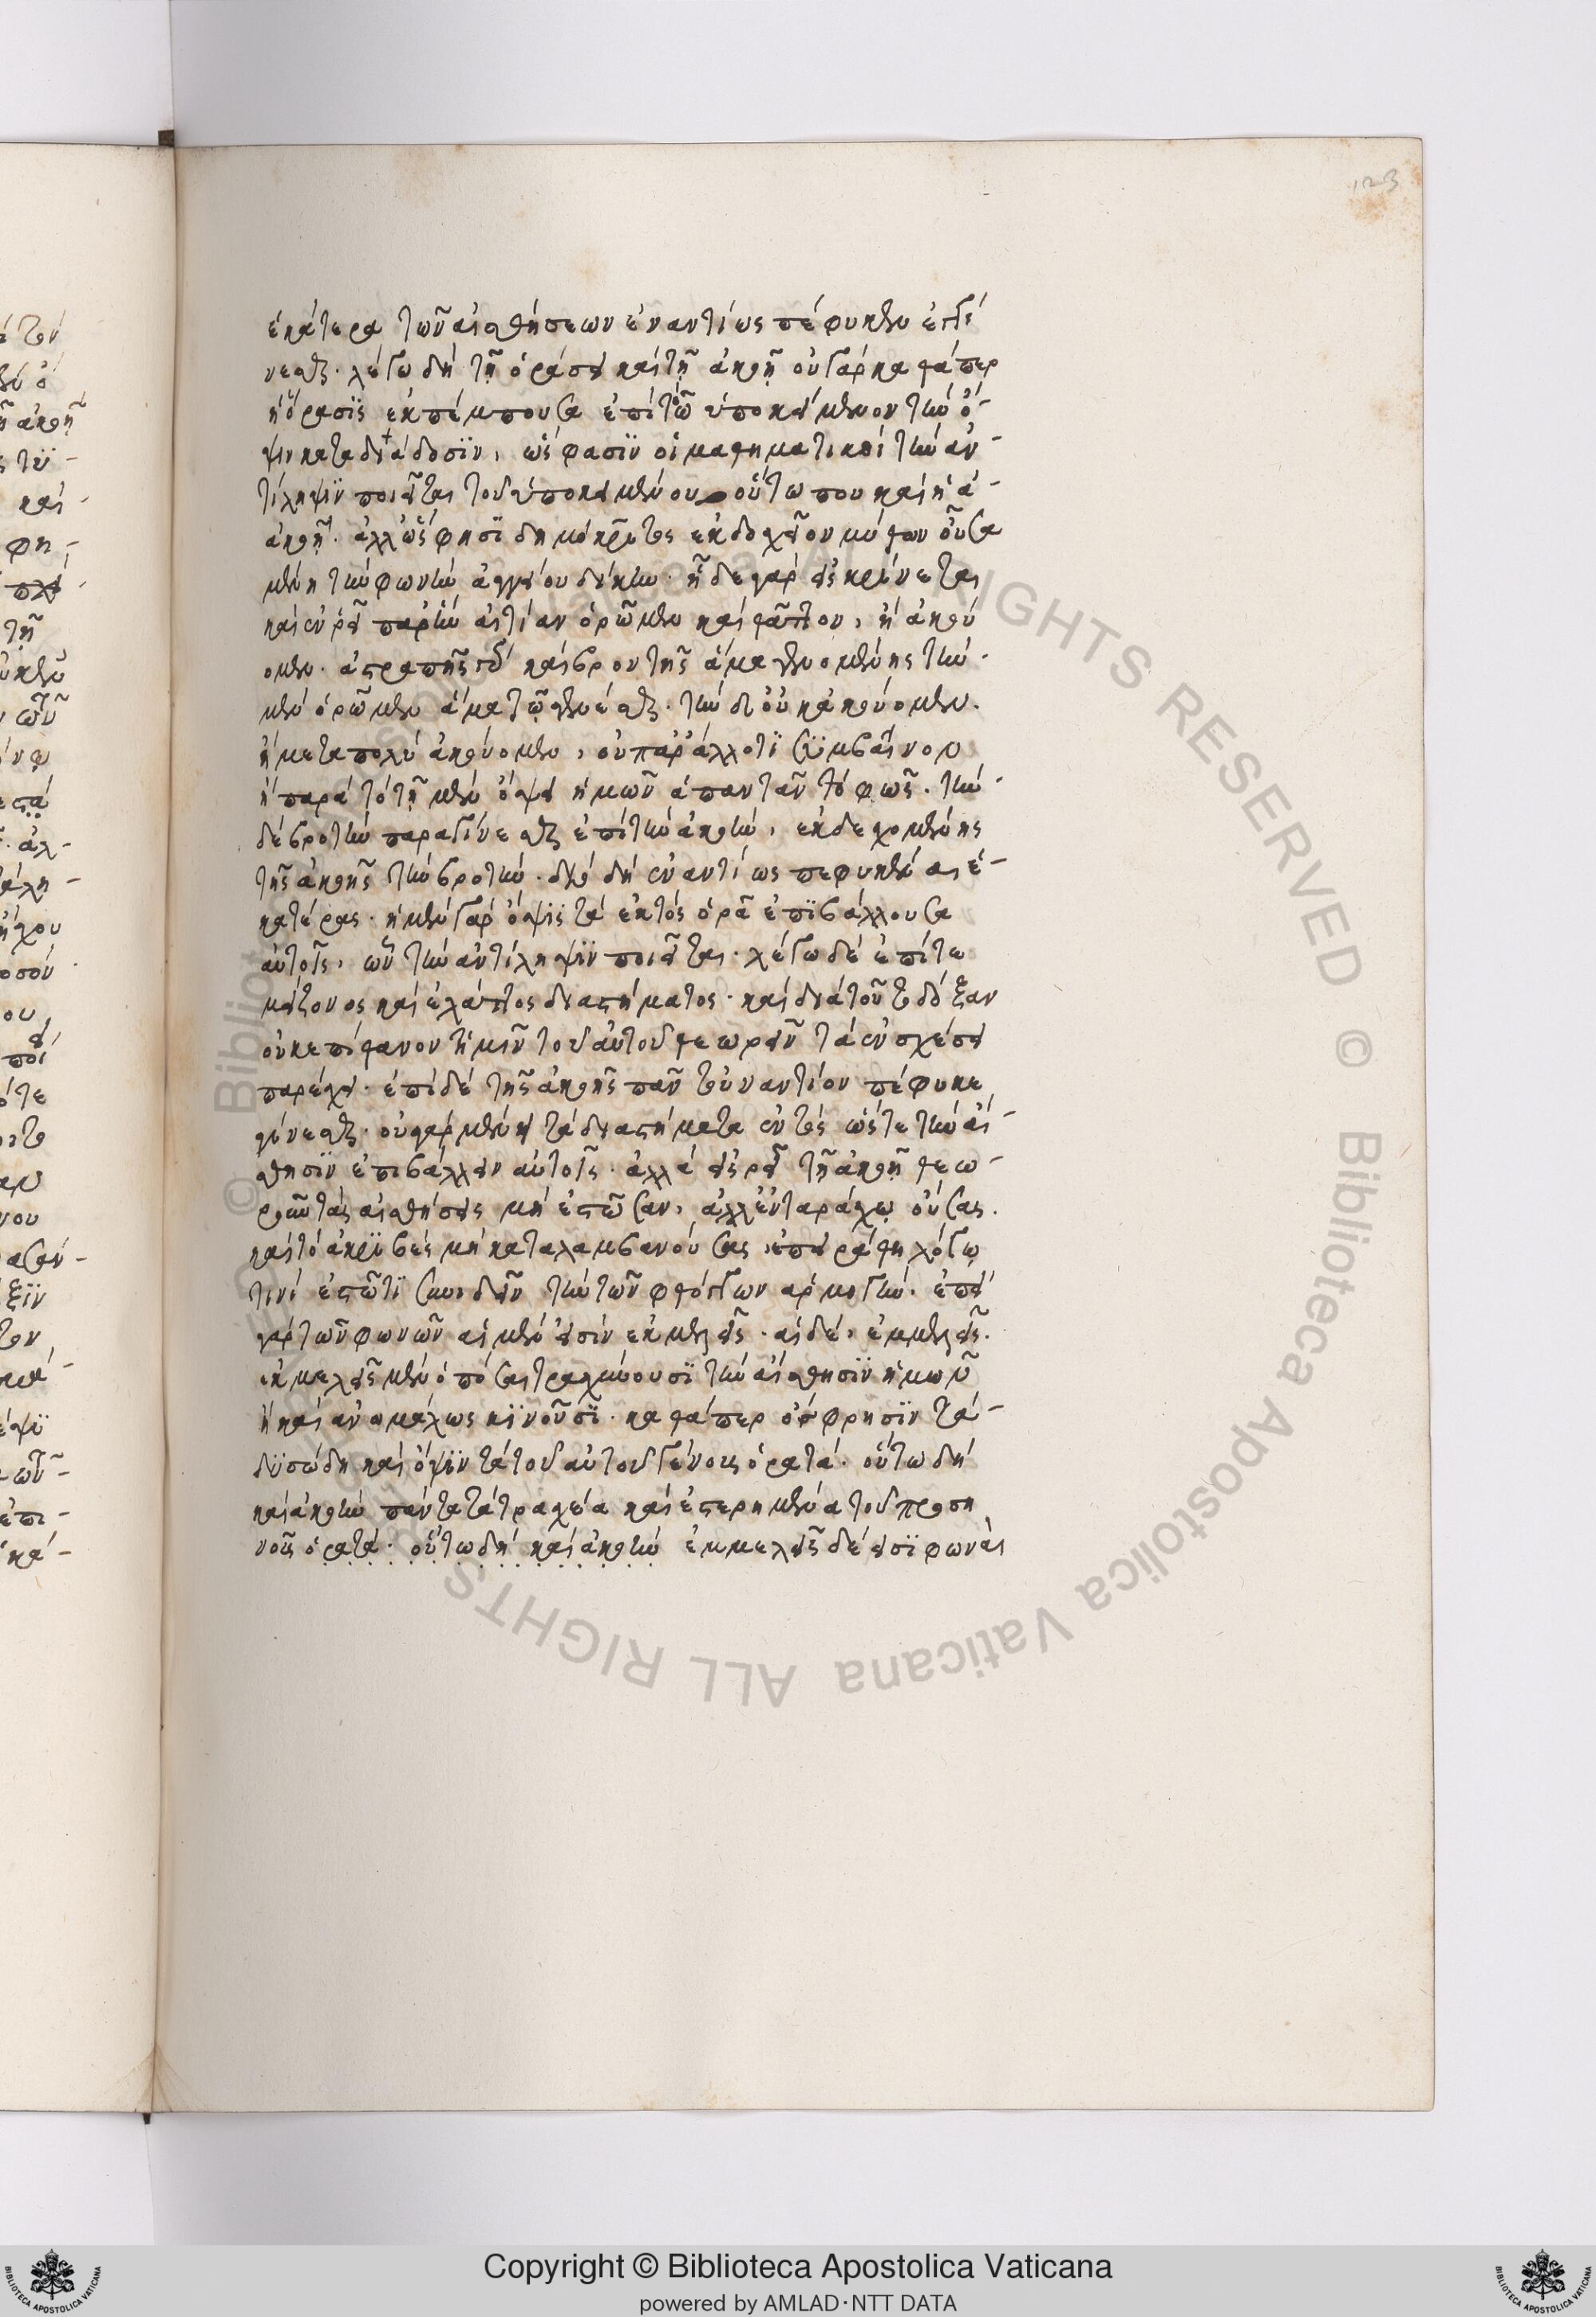 123
ἑκάτερα τῶν αἰσθήσεων ἐναντίως πέφυκεν ἐπιγί
νεσθαι· λέγω δὴ τῇ ὁράσει καὶ τῇ ἀκοῇ οὐ γὰρ καθάπερ
ἡ ὅρασις ἐκπέμπουσα ἐπὶ τὸ ὑποκείμενον τὴν ὄ-
ψιν κατὰ διάδοσιν, ὥς φασιν οἱ μαθηματικοὶ τὴν ἀν-
τίληψιν ποιεῖται τοῦ ὑποκειμένου οὕτω που καὶ ἡ ἀ-
ἀκοή· ἀλλ' ὥς φησι δημόκριτος ἐκδοχεῖον μύθων οὖσα
μένει τὴν φωνὴν ἀγγείου δίκην· ἥδε γὰρ εἰσκρίνεται
καὶ ἐνρεῖ παρ' ἣν αἰτίαν ὁρῶμεν καὶ θᾶττον, ἢ ἀκού
ομεν· ἀστραπῆς καὶ βροντῆς ἅμα γενομένης τὴν-
μὲν ὁρῶμεν ἅμα τῷ γενέσθαι· τὴν δ' οὐκ ἀκούομεν.
ἢ μετὰ πολὺ ἀκούομεν, οὐ παρ' ἄλλο τι συμβαῖνον
ἢ παρὰ τὸ τῇ μὲν ὄψει ἡμῶν ἀπαντᾶν τὸ φῶς· τὴν-
δὲ βροντὴν παραγίνεσθαι ἐπὶ τὴν ἀκοὴν, ἐκδεχομένης
τῆς ἀκοῆς τὴν βροντήν· διὸ δὴ ἐναντίως πεφυκέναι ἑ-
κατέρας· ἡ μὲν γὰρ ὄψις τὰ ἐκτὸς ὁρᾷ ἐπιβάλλουσα
αὐτοῖς, ὧν τὴν ἀντίληψιν ποιεῖται· λέγω δὲ ἐπί τε
μείζονος καὶ ἐλάττονος διαστήματος· καὶ διὰ τοῦτο δόξαν
οὐκ ἐπίφανον ἡμῖν τοῦ αὐτοῦ θεωρεῖν τὰ ἐν σχέσει
παρέχει· ἐπὶ δὲ τῆς ἀκοῆς πᾶν τοὐναντίον πέφυκε
γίνεσθαι· οὐ γὰρ μένει τὰ διαστήματα ἐντὸς ὥστε τὴν αἴ-
σθησιν ἐπιβάλλειν αὐτοῖς· ἀλλὰ εἰσρεῖ τῇ ἀκοῇ θεω-
ροῦν τὰς αἰσθήσεις μὴ ἑστώσας, ἀλλ' ἐν ταράχῳ οὔσας.
καὶ τὸ ἀκριβὲς μὴ καταλαμβανούσας, ἐπειράθη λόγῳ
τινὶ ἑστῶτι συνιδεῖν τὴν τῶν φθόγγων ἁρμογήν· ἐπεὶ
γὰρ τῶν φωνῶν αἱ μὲν εἰσιν ἐκμελεῖς· αἱ δὲ, ἐμμελεῖς.
ἐκμελεῖς μὲν ὁπόσαι τραχύνουσι τὴν αἴσθησιν ἡμῶν
ἢ καὶ ἀνωμάλως κινοῦσι· καθάπερ ὄσφρησιν τὰ-
δυσώδη καὶ ὄψιν τὰ τοῦ αὐτοῦ γένους ὁρατά· οὕτω δὴ
καὶ ἀκοὴν πάντα τὰ τραχέα καὶ ἐστερημένα τοῦ προση
νοῦς ὁρατά· οὕτω δὴ καὶ ἀκοὴν ἐμμελεῖς δέ εἰσι φωναὶ
Copyright © Biblioteca Apostolica Vaticana
powered by AMLAD·NTT DATA